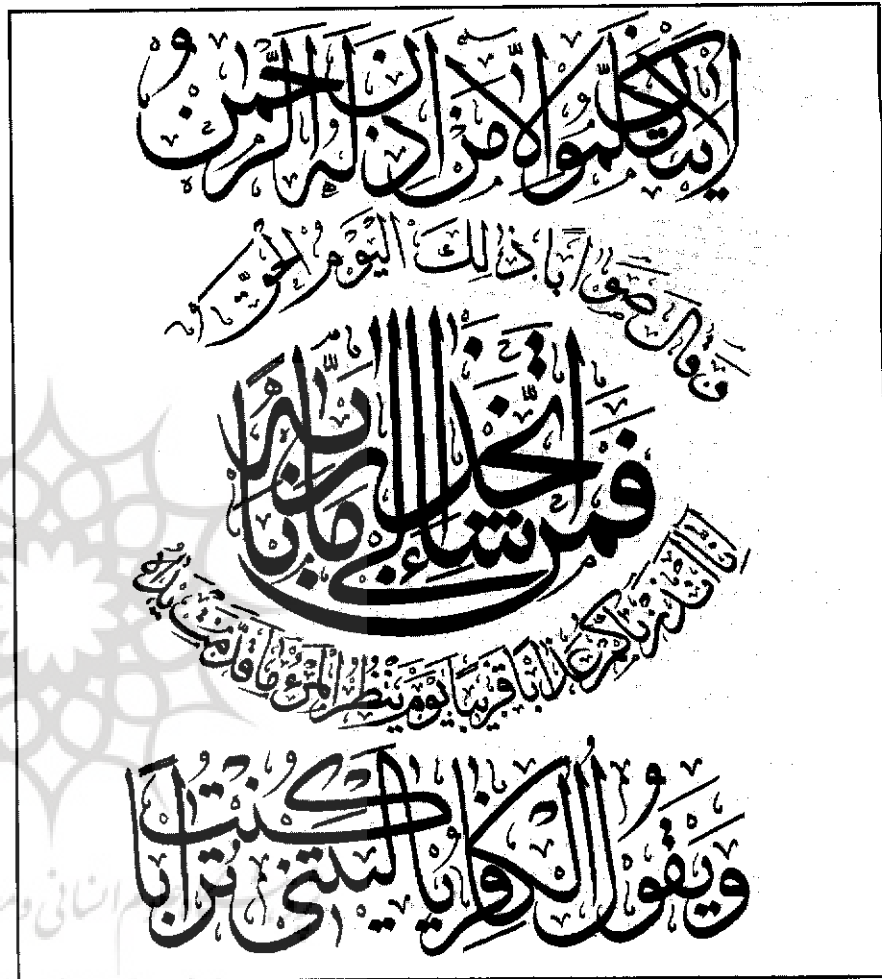 لا يتكلمون إلا من أذن له الرحمن
وقال صوابا ذلك اليوم الحق
فمن شاء اتخذ إلى ربه مآبا
إنا أنذرناكم عذابا قريبا يوم ينظر المرء ما قدمت يداه
ويقول الكافر يا ليتني كنت ترابا